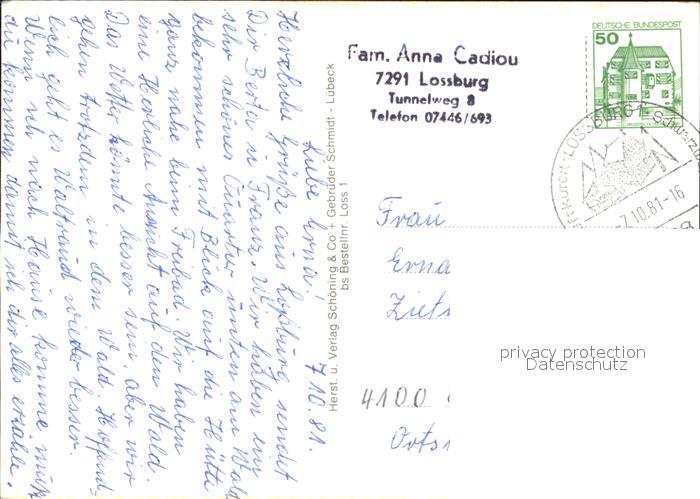 Liebe Erna! 7.10.81.
Herzliche Grüße aus Loßburg sendet
Dir Bertel u. Franz. Wir haben ein
sehr schönes Quartier unten am Wald
bekommen mit Blick auf die Hütte
ganz nahe beim Freibad. Wir haben
eine Herrliche Aussicht auf den Wald.
Das Wetter könnte besser sein, aber wir
gehen trotzdem in dem Wald. Hoffend-
lich geht es Waltraud wieder besser.
Wenn ich nach Hause komme mußt
du kommen damit ich dir alles erzähle.
Herst. u. Verlag Schöning & Co + Gebrüder Schmidt - Lübeck
bs Bestellnr. Loss 1
Fam. Anna Cadiou
7291 Lossburg
Tunnelweg 8
Telefon 07446/693
DEUTSCHE BUNDESPOST
50
LOSSBURG 1
-7.10.81-16
Frau
Erna
Ziets
4100
Orts
privacy protection
Datenschutz